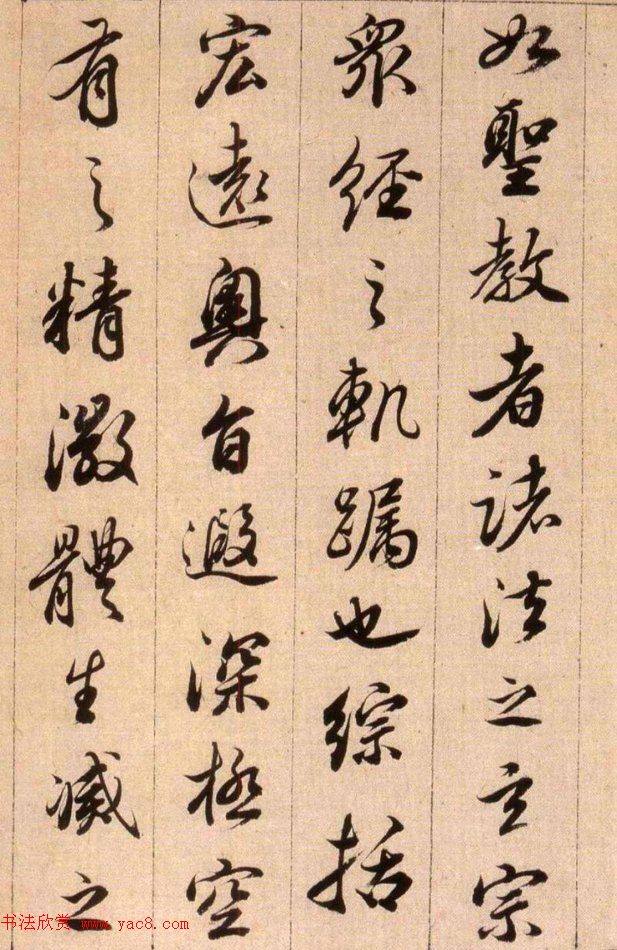 如聖教者諸法之玄宗
衆經之軌躅也綜括
宏遠奧旨遐深極空
有之精微體生滅之
书法欣赏 www.yac8.com